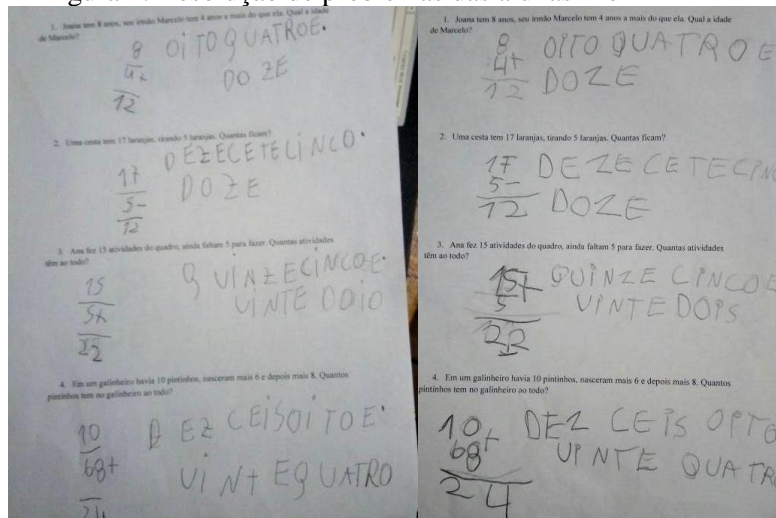 1. Joana tem 8 anos, seu irmão Marcelo tem 4 anos a mais do que ela. Qual a idade
de Marcelo?
8
4+
12
OITO QUATRO E.
DOZE
2. Uma cesta tem 17 laranjas, tirando 5 laranjas. Quantas ficam?
17
5-
12
DEZECETE CINCO.
DOZE
3. Ana fez 15 atividades do quadro, ainda faltam 5 para fazer. Quantas atividades
têm ao todo?
15
5+
22
QUINZE CINCO E.
VINTE DOIO
4. Em um galinheiro havia 10 pintinhos, nasceram mais 6 e depois mais 8. Quantos
pintinhos tem no galinheiro ao todo?
10
68+
24
DEZ CEIS OITO E.
VINT EQUATRO
1. Joana tem 8 anos, seu irmão Marcelo tem 4 anos a mais do que ela. Qual a idade
de Marcelo?
8
4+
12
OITO QUATRO E
DOZE
2. Uma cesta tem 17 laranjas, tirando 5 laranjas. Quantas ficam?
17
5-
12
DEZECETE CINC
DOZE
3. Ana fez 15 atividades do quadro, ainda faltam 5 para fazer. Quantas atividades
têm ao todo?
15+
5
22
QUINZE CINCO E
VINTE DOIS
4. Em um galinheiro havia 10 pintinhos, nasceram mais 6 e depois mais 8. Quantos
pintinhos tem no galinheiro ao todo?
10
68+
24
DEZ CEIS OITO
VINTE QUATR